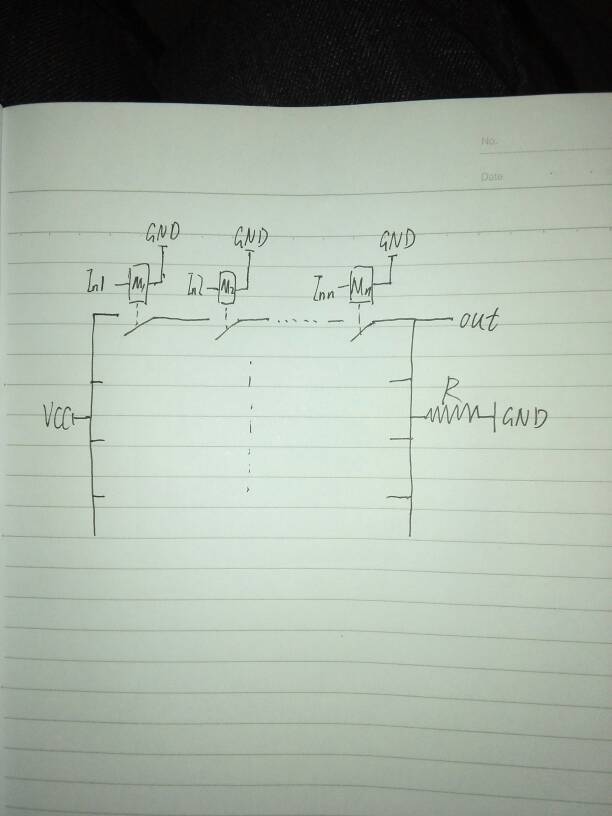 No.
Date
GND GND GND
In1 M1 In2 M2 Inn Mn
out
R
VCC GND